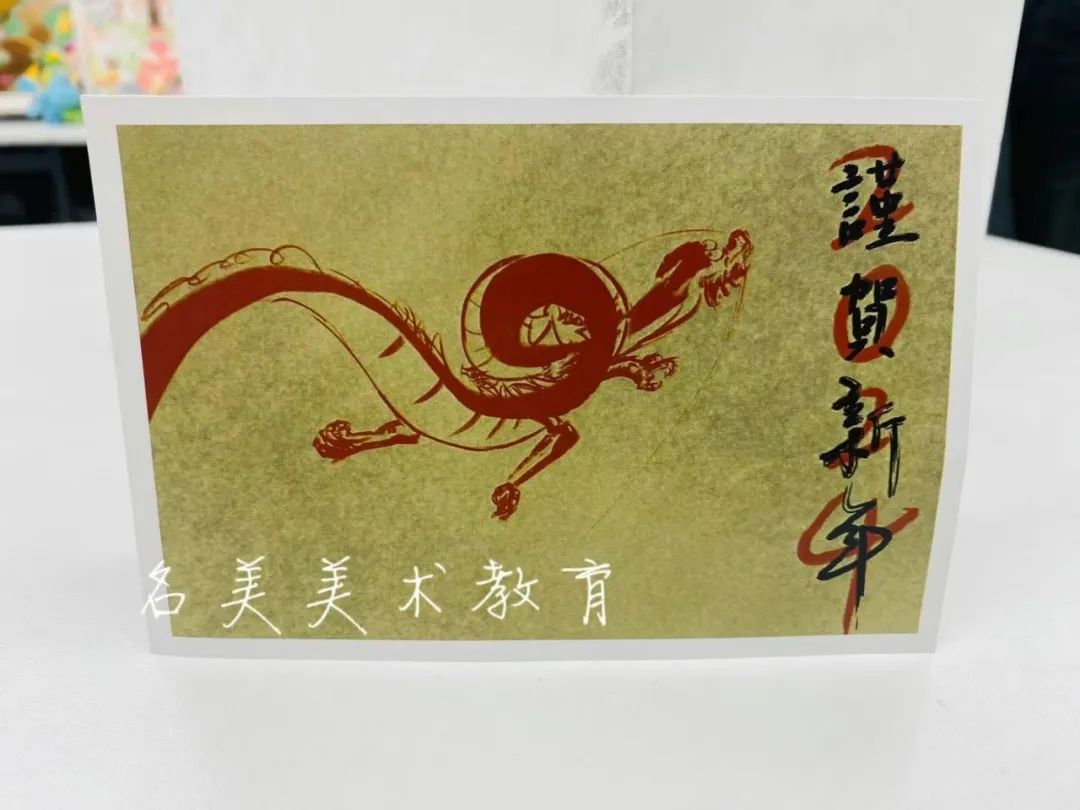 謹賀新年
2024
名美美术教育